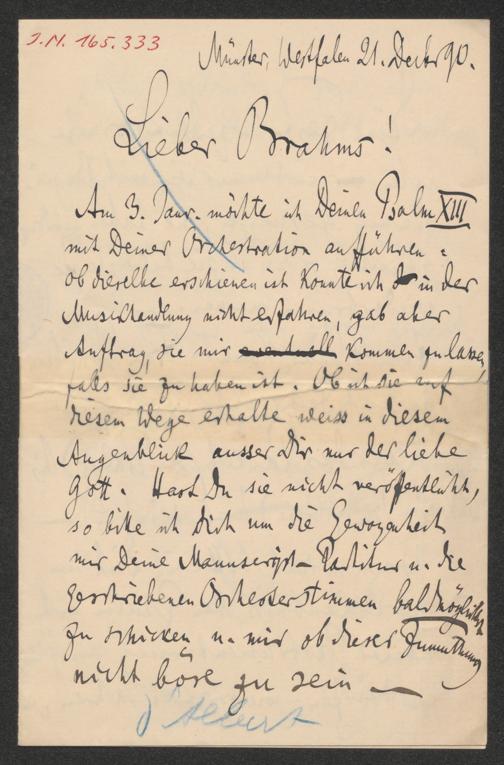 J.N. 165.333
Münster, Westfalen 21. Decbr 90.
Lieber Brahms!
Am 3. Janr. möchte ich Deinen Psalm XIII
mit Deiner Orchestration aufführen:
ob dieselbe erschienen ist konnte ich in der
Musikhandlung nicht erfahren, gab aber
Auftrag, sie mir eventuell kommen zu lassen,
falls sie zu haben ist. Ob ich sie auf
diesem Wege erhalte weiss in diesem
Augenblick ausser Dir nur der liebe
Gott. Hast Du sie nicht veröffentlicht,
so bitte ich Dich um die Gewogenheit
mir Deine Manuscript-Partitur u. die
geschriebenen Orchesterstimmen baldmöglichst
zu schicken u. mir ob dieser Zumuthung
nicht böse zu sein —
d'Albert